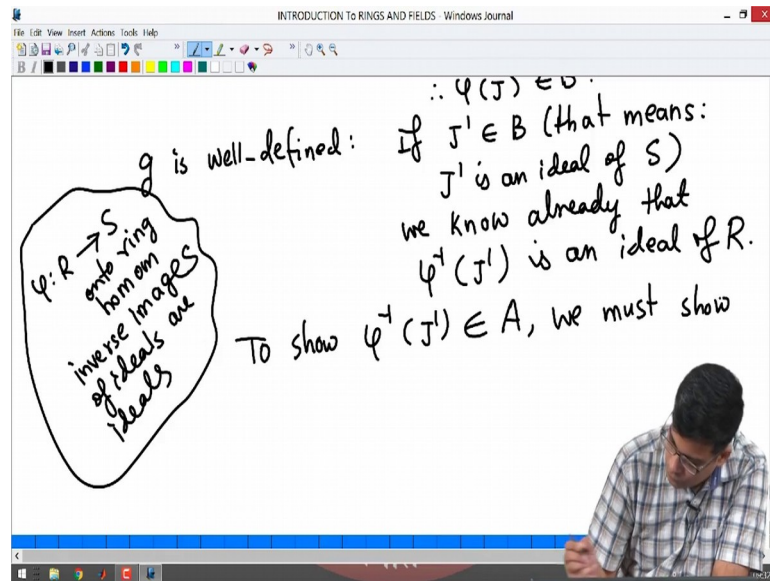 INTRODUCTION To RINGS AND FIELDS - Windows Journal
File Edit View Insert Actions Tools Help
B I
∴ φ(J) ∈ B.
g is well-defined: If J' ∈ B (that means:
J' is an ideal of S)
we know already that
φ⁻¹(J') is an ideal of R.
φ: R → S
onto ring
homom
inverse images
of ideals are
ideals
To show φ⁻¹(J') ∈ A, we must show